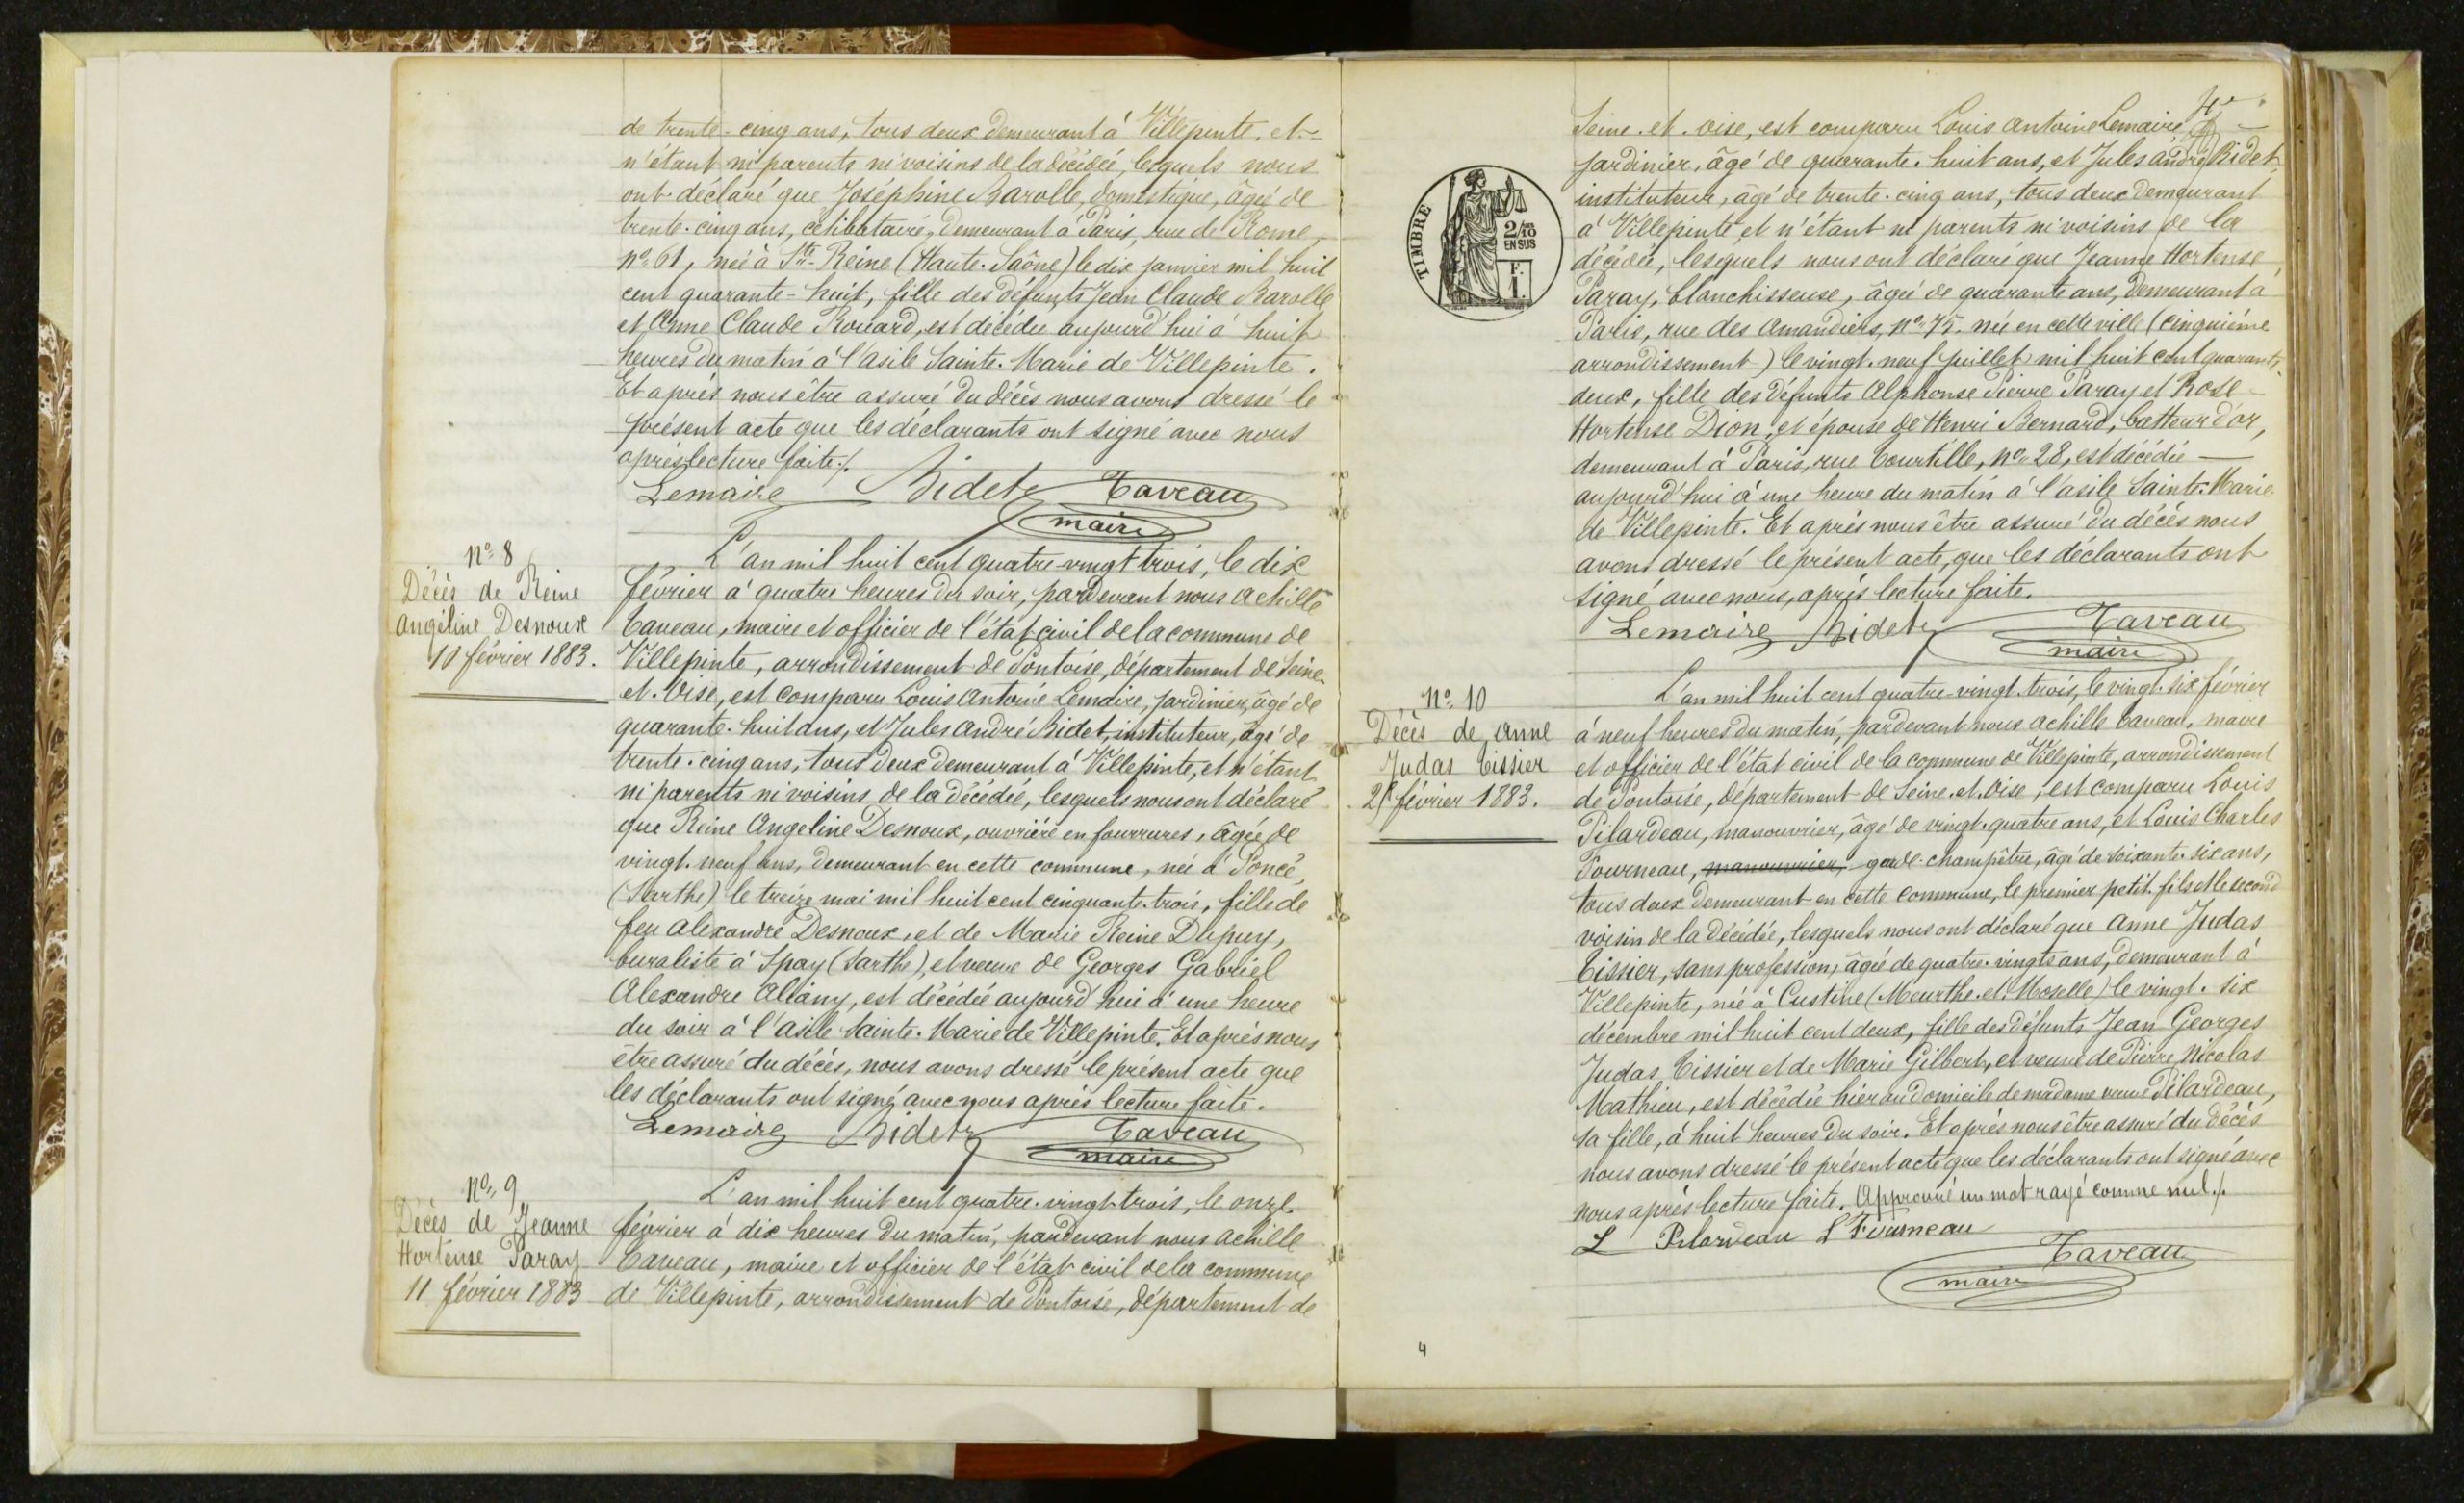 de trente-cinq ans, tous deux demeurant à Villepinte, et
n'étant ni parents ni voisins de la décédée, lesquels nous
ont déclaré que Joséphine Barolle, domestique, âgée de
trente-cinq ans, célibataire, demeurant à Paris, rue de Rome,
n° 61, née à Ste-Reine (Haute-Saône) le dix janvier mil huit
cent quarante-huit, fille des défunts Jean Claude Barolle
et Anne Claude Rouard, est décédée aujourd'hui à huit
heures du matin à l'asile Sainte-Marie de Villepinte.
Et après nous être assuré du décès nous avons dressé le
présent acte que les déclarants ont signé avec nous
après lecture faite./.
Lemaire Bidet Taveau
maire
N° 8
Décès de Reine
Angéline Desnoux
10 février 1883.
L'an mil huit cent quatre-vingt trois, le dix
février à quatre heures du soir, pardevant nous Achille
Taveau, maire et officier de l'état-civil de la commune de
Villepinte, arrondissement de Pontoise, département de Seine-
et-Oise, est comparu Louis Antoine Lemaire, jardinier, âgé de
quarante-huit ans, et Jules André Bidet, instituteur, âgé de
trente-cinq ans, tous deux demeurant à Villepinte, et n'étant
ni parents ni voisins de la décédée, lesquels nous ont déclaré
que Reine Angeline Desnoux, ouvrière en fourrures, âgée de
vingt-neuf ans, demeurant en cette commune, née à Poncé,
(Sarthe) le treize mai mil huit cent cinquante-trois, fille de
feu Alexandre Desnoux, et de Marie Reine Dupuy,
buraliste à Spay (Sarthe), et veuve de Georges Gabriel
Alexandre, est décédée aujourd'hui à une heure
du soir à l'asile Sainte-Marie de Villepinte. Et après nous
être assuré du décès, nous avons dressé le présent acte que
les déclarants ont signé avec nous après lecture faite.
Lemaire Bidet Taveau
maire
N° 9
Décès de Jeanne
Hortense Paray
11 février 1883
L'an mil huit cent quatre-vingt-trois, le onze
février à dix heures du matin, pardevant nous Achille
Taveau, maire et officier de l'état civil de la commune
de Villepinte, arrondissement de Pontoise, département de
4e
Seine-et-Oise, est comparu Louis Antoine Lemaire
jardinier, âgé de quarante-huit ans, et Jules André Bidet
instituteur, âgé de trente-cinq ans, tous deux demeurant
à Villepinte et n'étant ni parents ni voisins de la
décédée, lesquels nous ont déclaré que Jeanne Hortense
Paray, blanchisseuse, âgée de quarante ans, demeurant à
Paris, rue des Amandiers, n° 75, née en cette ville (cinquième
arrondissement) le vingt-neuf juillet mil huit cent quarante-
deux, fille des défunts Alphonse Pierre Paray et Rose
Hortense Dion, et épouse de Henri Bernard, batteur d'or,
demeurant à Paris, rue Courtille, n° 28, est décédée
aujourd'hui à une heure du matin à l'asile Sainte-Marie
de Villepinte. Et après nous être assuré du décès nous
avons dressé le présent acte, que les déclarants ont
signé avec nous, après lecture faite.
Lemaire Bidet Taveau
maire
TIMBRE
2/10
EN SUS
F.
1.
N° 10
Décès de Anne
Judas Tissier
février 1883.
L'an mil huit cent quatre-vingt-trois, le vingt-six février
à neuf heures du matin, pardevant nous Achille Taveau, maire
et officier de l'état civil de la commune de Villepinte, arrondissement
de Pontoise, département de Seine-et-Oise, est comparu Louis
Pilardeau, manouvrier, âgé de vingt-quatre ans, et Louis Charles
Fourneau, manouvrier, garde-champêtre, âgé de soixante-six ans,
tous deux demeurant en cette commune, le premier petit-fils et le second
voisin de la décédée, lesquels nous ont déclaré que Anne Judas
Tissier, sans profession, âgée de quatre-vingts ans, demeurant à
Villepinte, née à Custine (Meurthe-et-Moselle) le vingt-six
décembre mil huit cent deux, fille des défunts Jean Georges
Judas Tissier et de Marie Gilbert, et veuve de Pierre Nicolas
Mathieu, est décédée hier au domicile de madame veuve Pilardeau,
sa fille, à huit heures du soir. Et après nous être assuré du décès
nous avons dressé le présent acte que les déclarants ont signé avec
nous après lecture faite. Approuvé un mot rayé comme nul./.
L Pilardeau L Fourneau
Taveau
maire
4